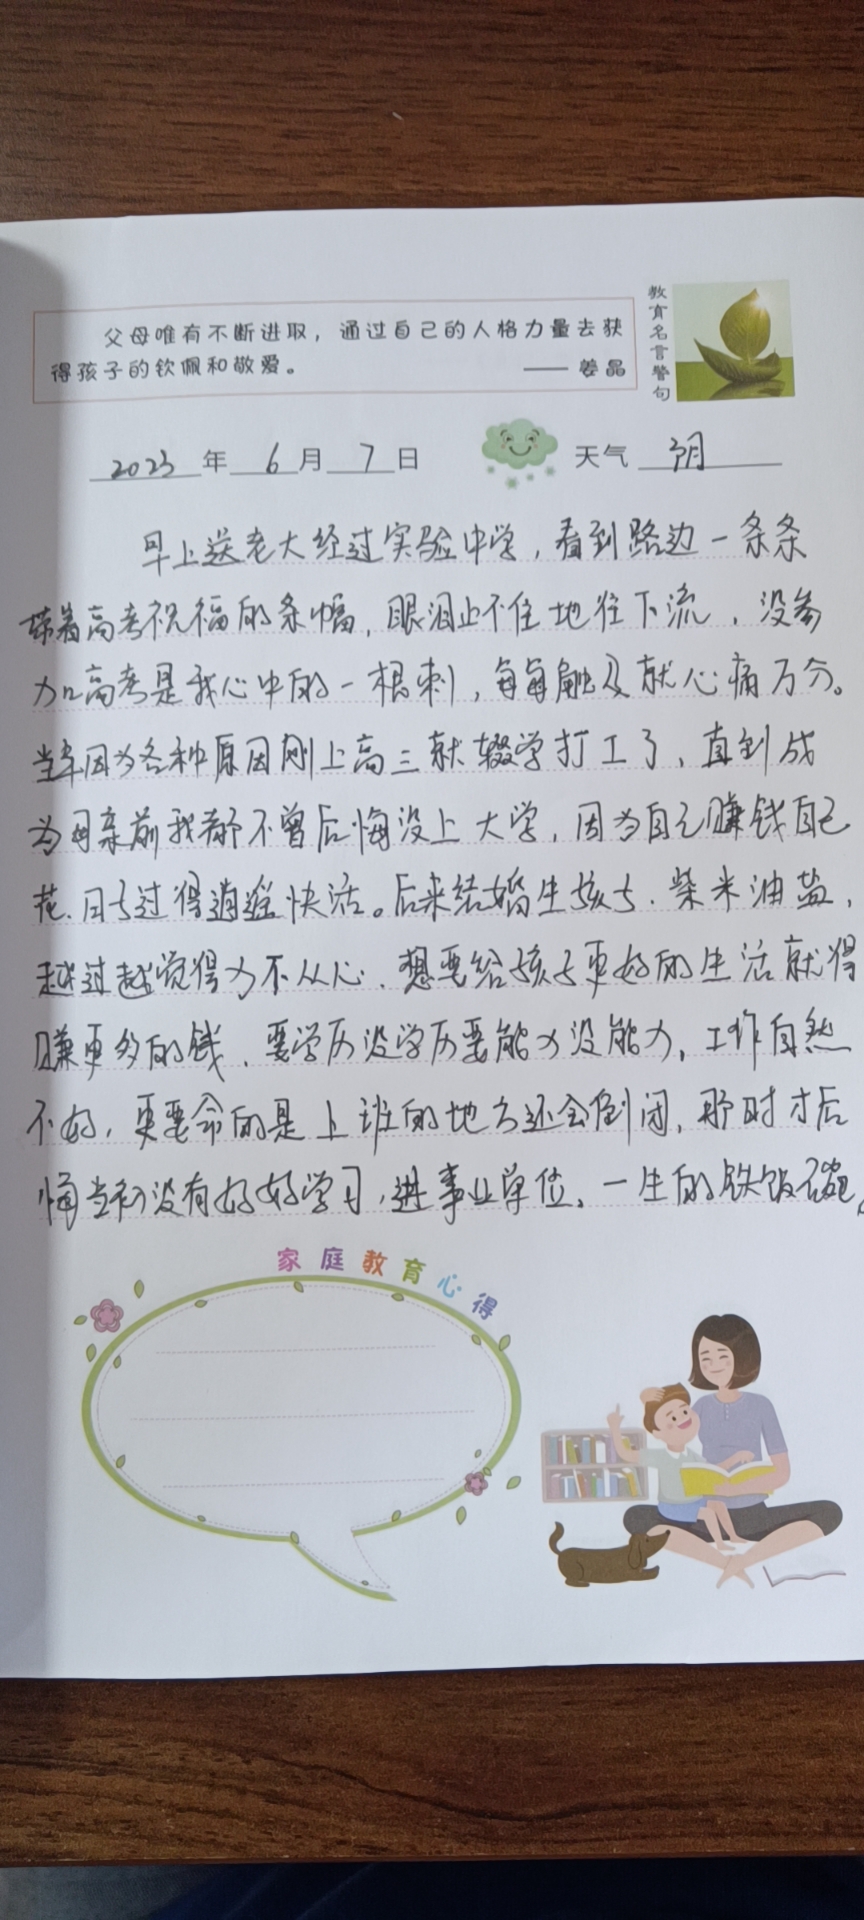 父母唯有不断进取，通过自己的人格力量去获
得孩子的钦佩和敬爱。 —— 姜晶
教育名言警句
2023年 6月 7日 天气 阴
早上送老大经过实验中学，看到路边一条条
带着高考祝福的条幅，眼泪止不住地往下流，没参
加高考是我心中的一根刺，每每触及就心痛万分。
当年因为各种原因刚上高三就辍学打工了，直到成
为母亲前我都不曾后悔没上大学，因为自己赚钱自己
花、日子过得逍遥快活。后来结婚生孩子、柴米油盐，
越过越觉得力不从心、想要给孩子更好的生活就得
赚更多的钱、要学历没学历要能力没能力，工作自然
不好，更要命的是上班的地方还会倒闭，那时才后
悔当初没有好好学习，进事业单位、一生的铁饭碗。
家庭教育心得